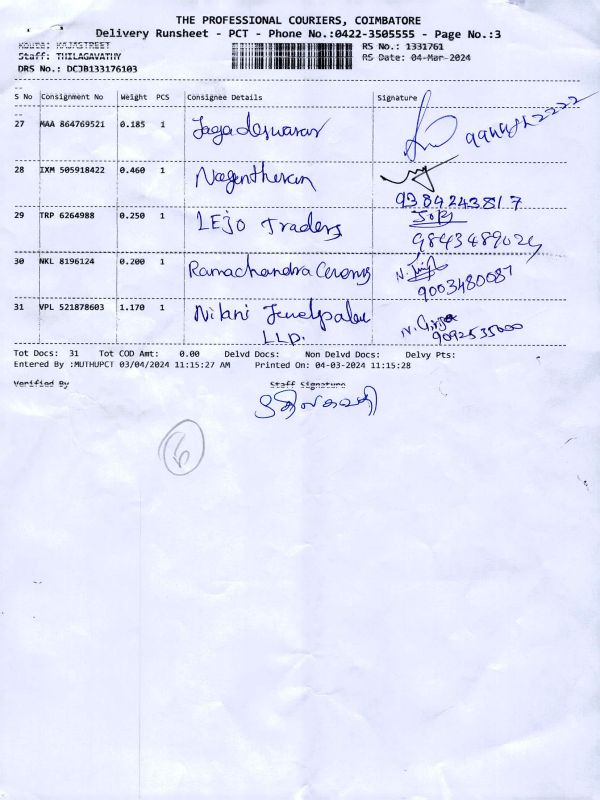 THE PROFESSIONAL COURIERS, COIMBATORE
Delivery Runsheet - PCT - Phone No.:0422-3505555 - Page No.:3
Route: RAJASTREET RS No.: 1331761
Staff: THILAGAVATHY RS Date: 04-Mar-2024
DRS No.: DCJB133176103
S No Consignment No Weight PCS Consignee Details Signature
27 MAA 864769521 0.185 1 Jagadeswaran
28 IXM 505918422 0.460 1 Nagentheran 9384243817
29 TRP 6264988 0.250 1 LEJO Traders
30 NKL 8196124 0.200 1 Ramachandra 9003480087
31 VPL 521878603 1.170 1 Nilani
LLP. 9092535000
Tot Docs: 31 Tot COD Amt: 0.00 Delvd Docs: Non Delvd Docs: Delvy Pts:
Entered By :MUTHUPCT 03/04/2024 11:15:27 AM Printed On: 04-03-2024 11:15:28
Verified By Staff Signature
6